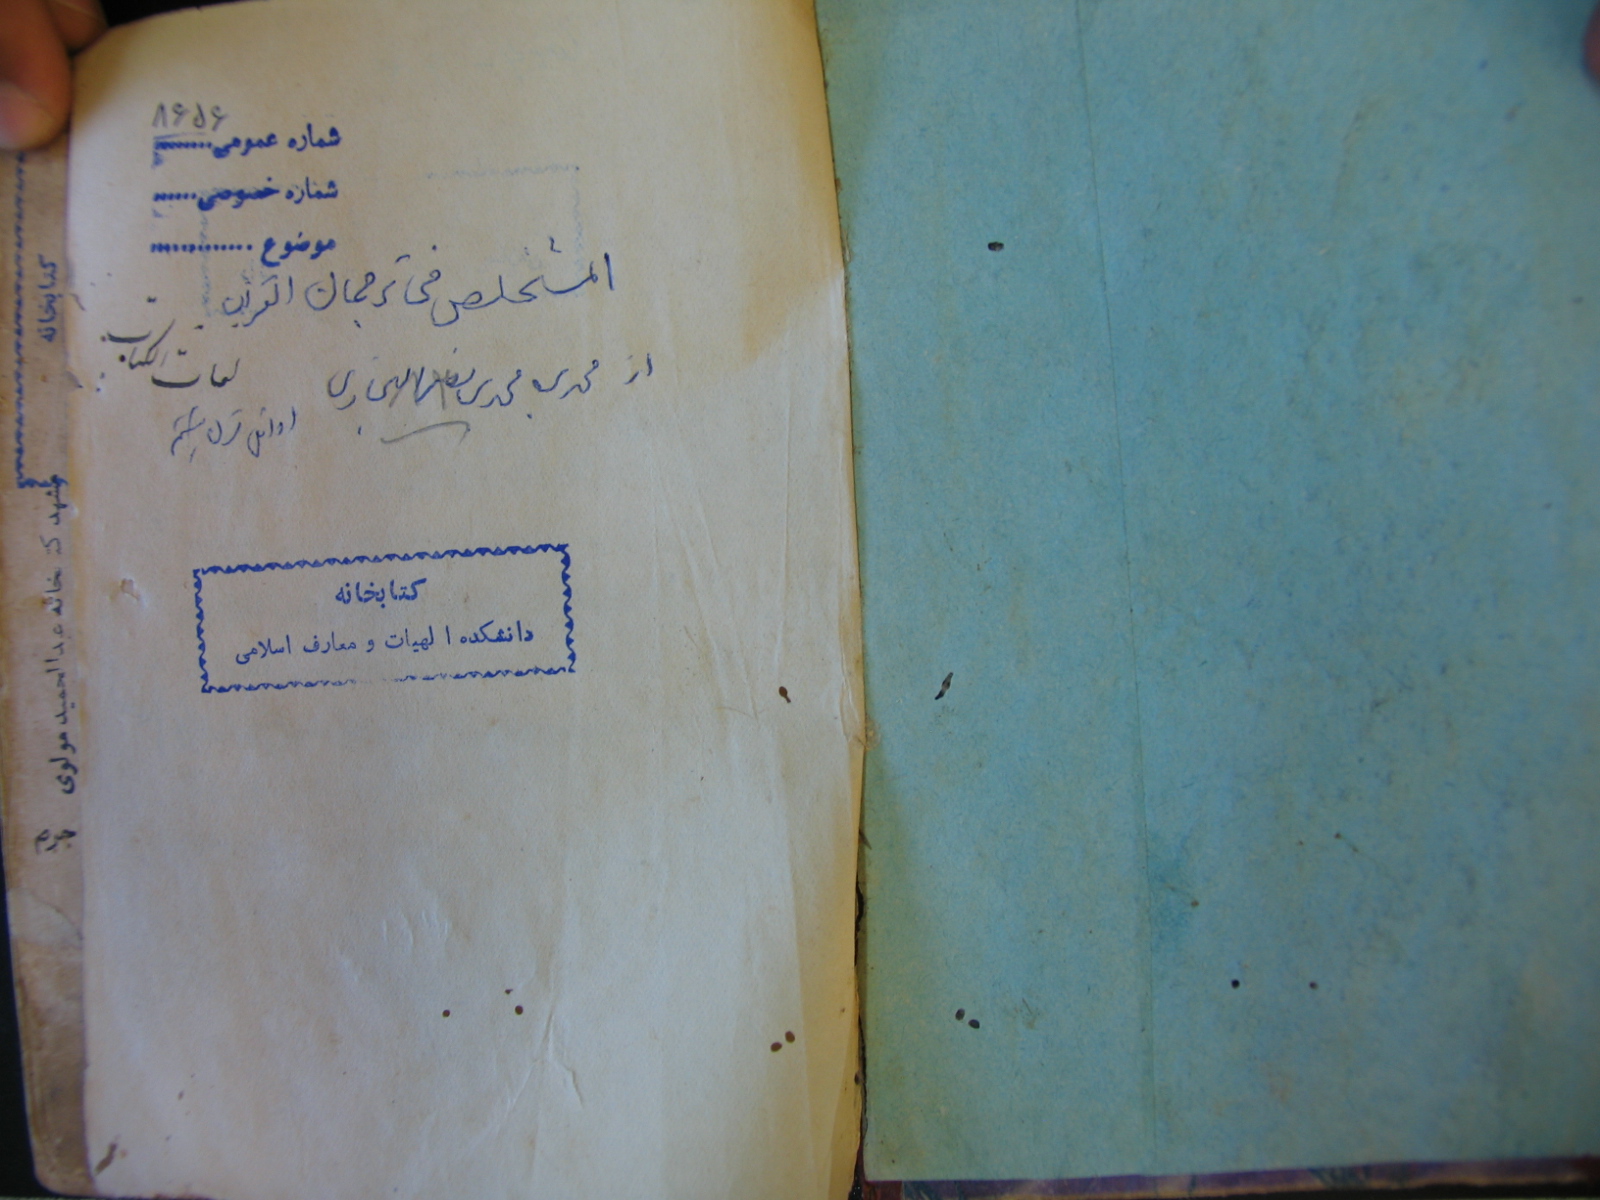 ۸۶۵۶
شماره عمومی..........
شماره خصوصی......
موضوع .............
المستخلص فی ترجمان القرآن
از محمد بن محمد بن البخاری
لغات الکتاب
اوائل قرن
کتابخانه
دانشکده الهیات و معارف اسلامی
کتابخانه
مشهد کتابخانه عبدالحمید مولوی